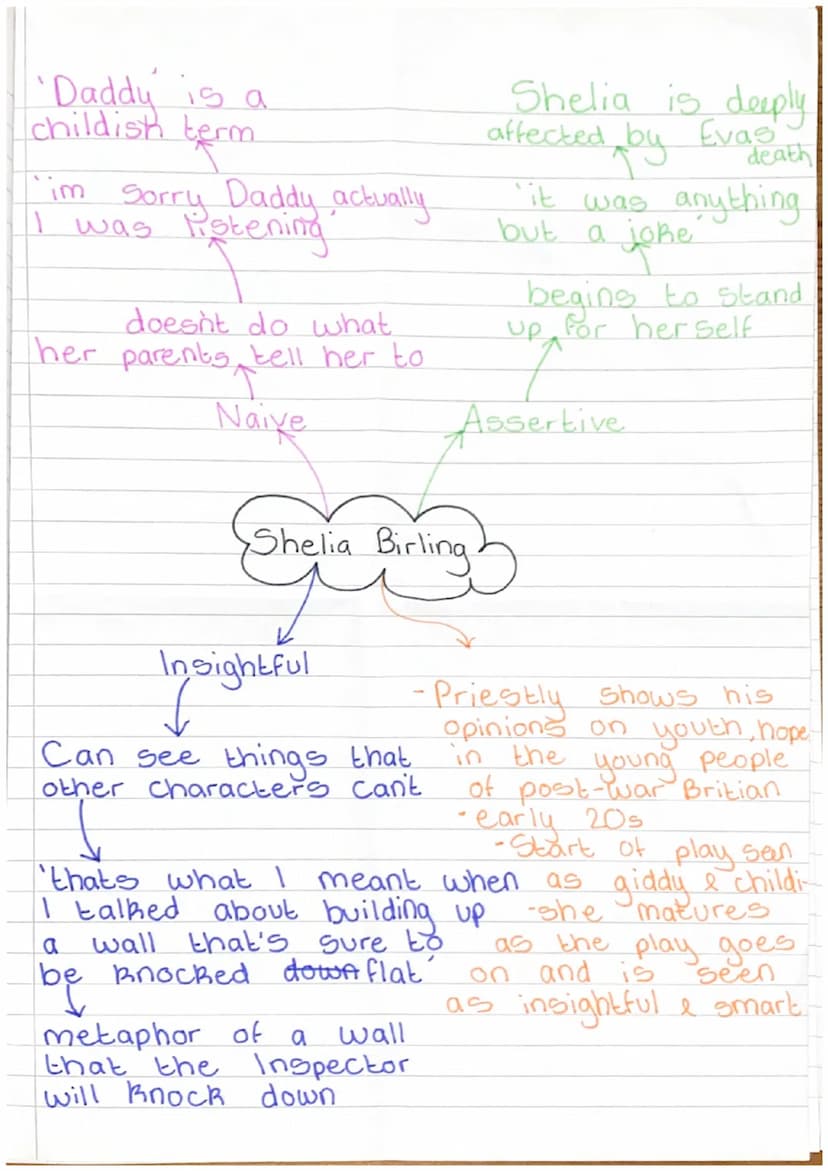 'Daddy' is a
childish term
'im sorry Daddy actually
I was listening'
doesn't do what
her parents tell her to
Naive
Shelia is deeply
affected by Evas
death
'it was anything
but a joke'
begins to stand
up for herself
Assertive
Shelia Birling
Insightful
Can see things that
other characters can't
'thats what I meant when
I talked about building up
a wall that's sure to
be knocked down flat'
metaphor of a wall
that the Inspector
will knock down
- Priestly shows his
opinions on youth, hope
in the young people
of post-war Britian
- early 20s
- Start of play seen
as giddy & childi
- she matures
as the play goes
on and is seen
as insightful & smart